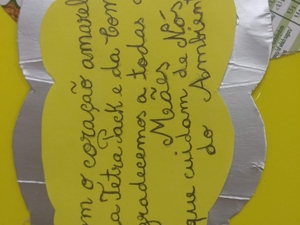 m o coração amarel
a Tetra Pack e da Com
gradecemos a todas a
Mães
que cuidam de Nós
do Ambien